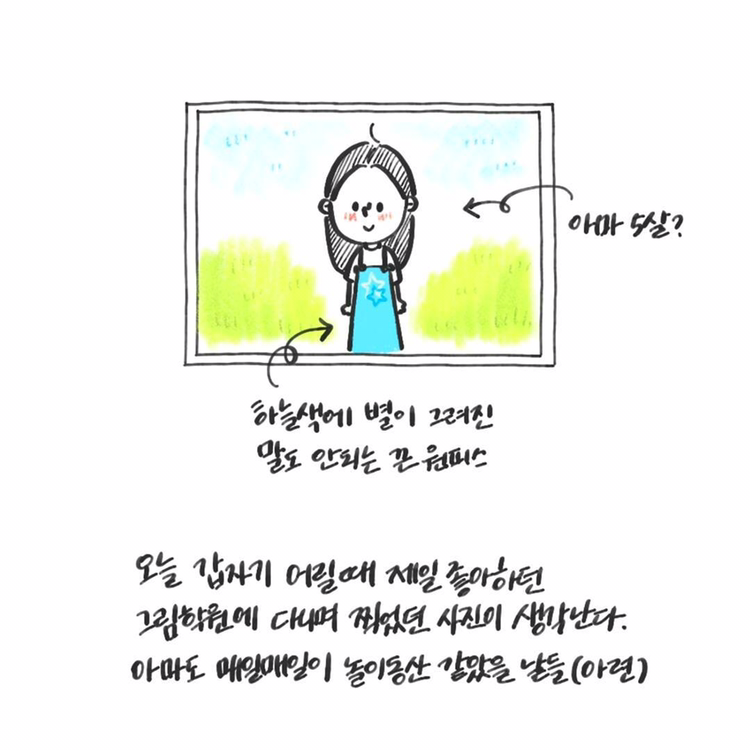 아마 5살?
하늘색에 별이 그려진
말도 안되는 끈원피스
오늘 갑자기 어릴때 제일 좋아하던
그림학원에 다니며 찍었던 사진이 생각난다.
아마도 매일매일이 놀이동산 같았을 날들(아련)